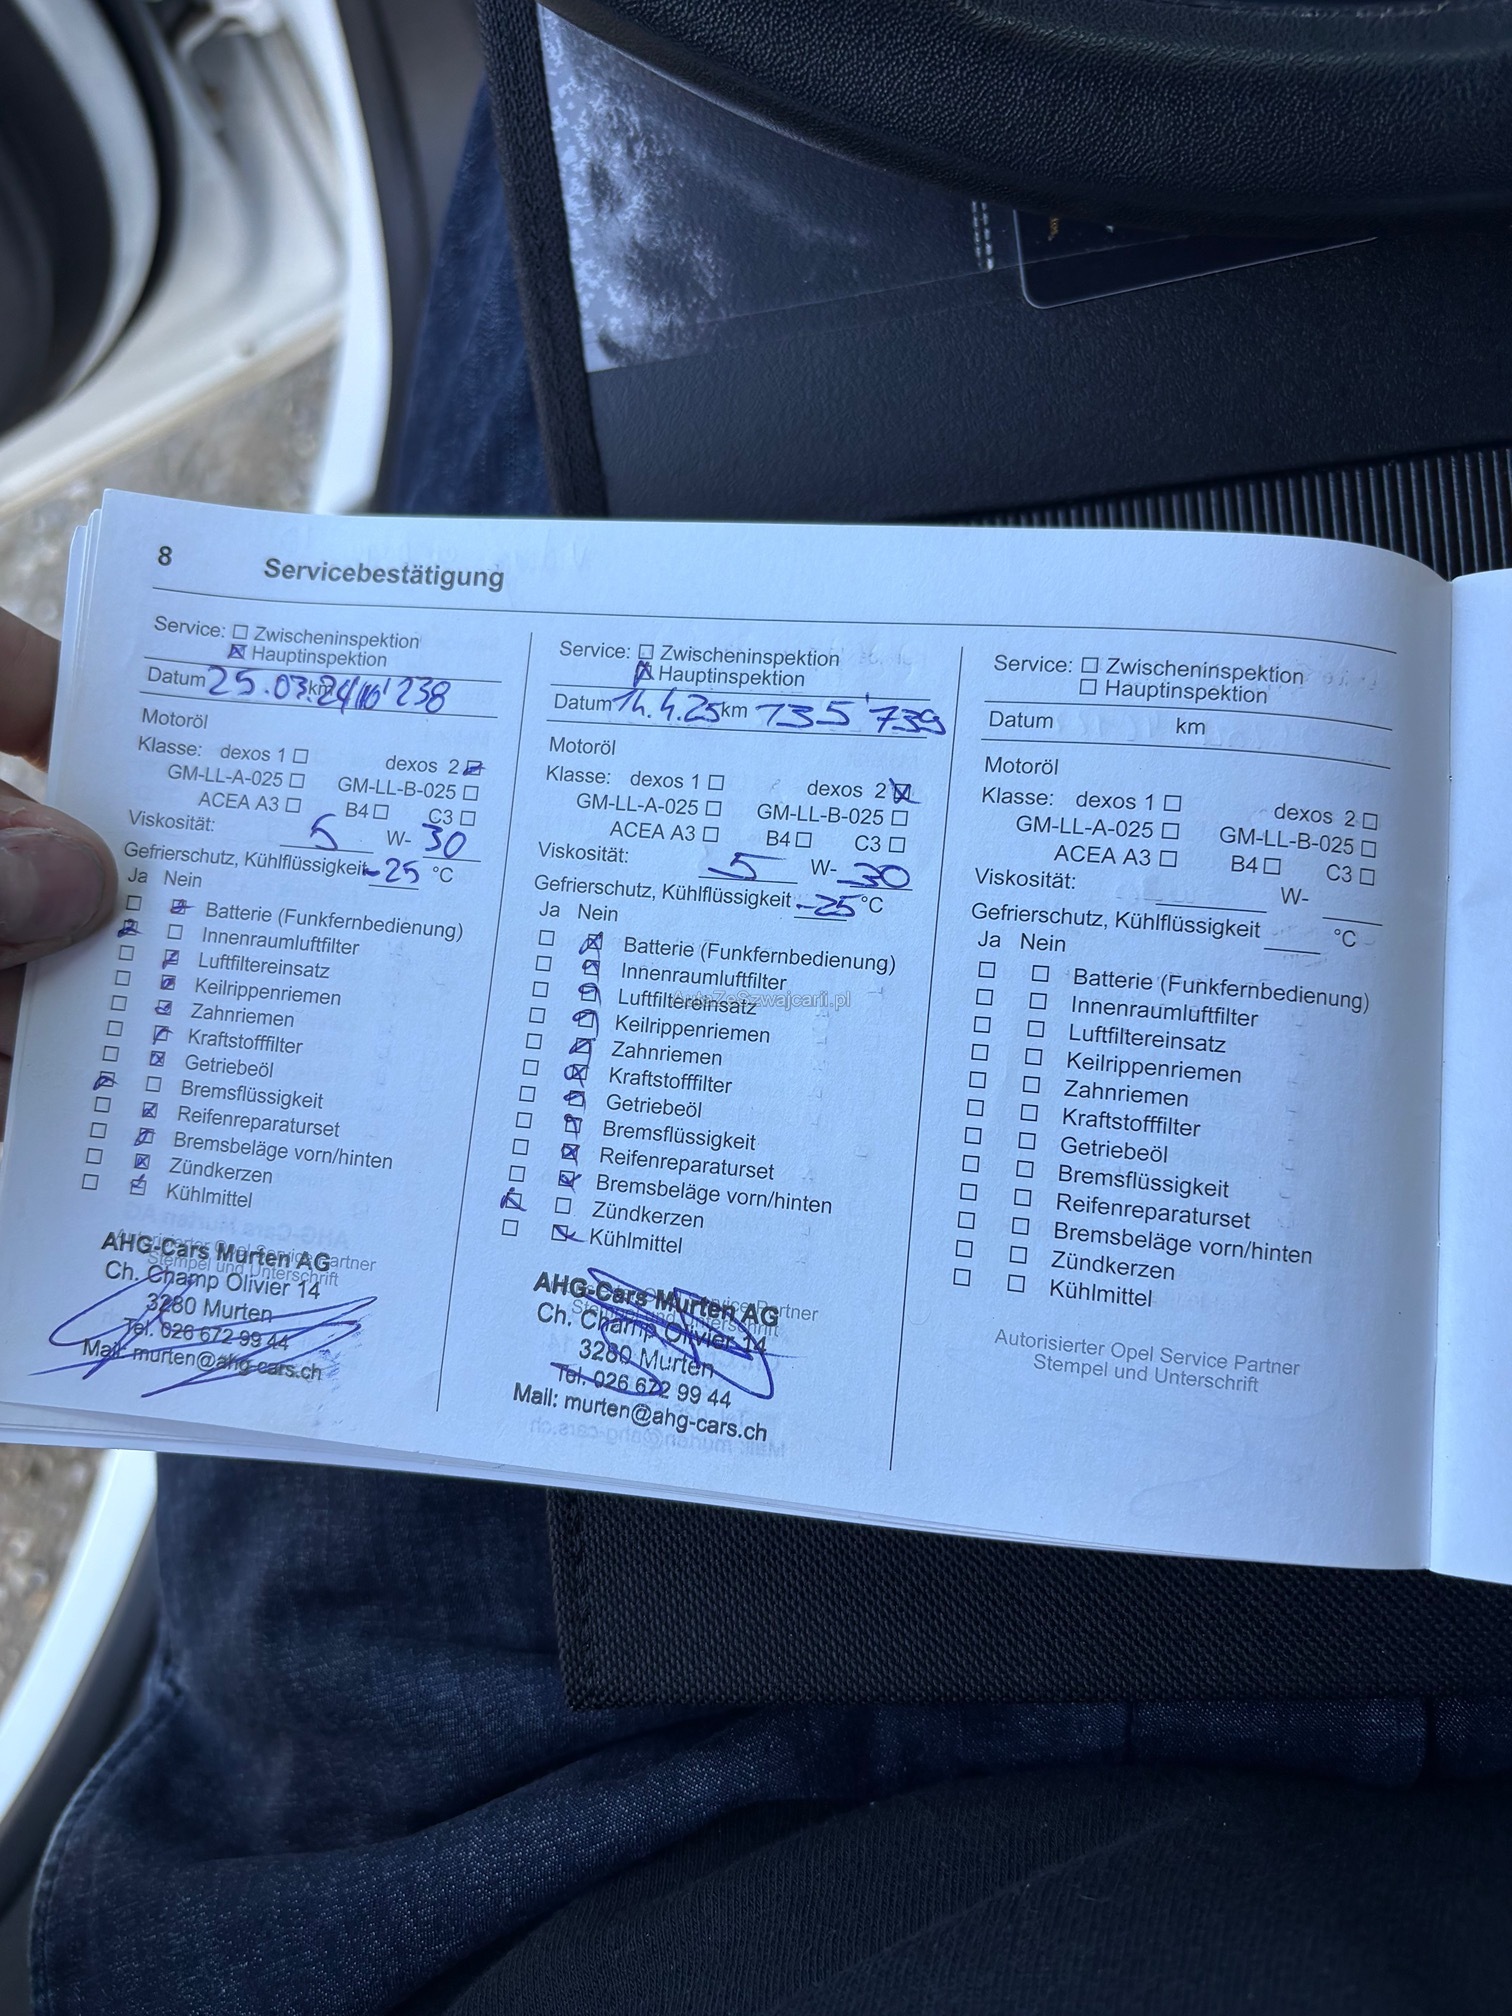 8 Servicebestätigung
Service: Zwischeninspektion
Hauptinspektion
Datum 25.03.24 km 238
Motoröl
Klasse: dexos 1 dexos 2
GM-LL-A-025 GM-LL-B-025
ACEA A3 B4 C3
Viskosität: 5 W- 30
Gefrierschutz, Kühlflüssigkeit -25 °C
Ja Nein
Batterie (Funkfernbedienung)
Innenraumluftfilter
Luftfiltereinsatz
Keilrippenriemen
Zahnriemen
Kraftstofffilter
Getriebeöl
Bremsflüssigkeit
Reifenreparaturset
Bremsbeläge vorn/hinten
Zündkerzen
Kühlmittel
Autorisierter Opel Service Partner
Stempel und Unterschrift
AHG-Cars Murten AG
Ch. Champ Olivier 14
3280 Murten
Tel. 026 672 99 44
Mail: murten@ahg-cars.ch
Service: Zwischeninspektion
Hauptinspektion
Datum 14.4.25 km 135'739
Motoröl
Klasse: dexos 1 dexos 2
GM-LL-A-025 GM-LL-B-025
ACEA A3 B4 C3
Viskosität: 5 W- 30
Gefrierschutz, Kühlflüssigkeit -25 °C
Ja Nein
Batterie (Funkfernbedienung)
Innenraumluftfilter
Luftfiltereinsatz
AutoZeSzwajcarii.pl
Keilrippenriemen
Zahnriemen
Kraftstofffilter
Getriebeöl
Bremsflüssigkeit
Reifenreparaturset
Bremsbeläge vorn/hinten
Zündkerzen
Kühlmittel
Service Partner
Stempel und Unterschrift
AHG-Cars Murten AG
Ch. Champ Olivier 14
3280 Murten
Tel. 026 672 99 44
Mail: murten@ahg-cars.ch
Service: Zwischeninspektion
Hauptinspektion
Datum km
Motoröl
Klasse: dexos 1 dexos 2
GM-LL-A-025 GM-LL-B-025
ACEA A3 B4 C3
Viskosität: W-
Gefrierschutz, Kühlflüssigkeit °C
Ja Nein
Batterie (Funkfernbedienung)
Innenraumluftfilter
Luftfiltereinsatz
Keilrippenriemen
Zahnriemen
Kraftstofffilter
Getriebeöl
Bremsflüssigkeit
Reifenreparaturset
Bremsbeläge vorn/hinten
Zündkerzen
Kühlmittel
Autorisierter Opel Service Partner
Stempel und Unterschrift